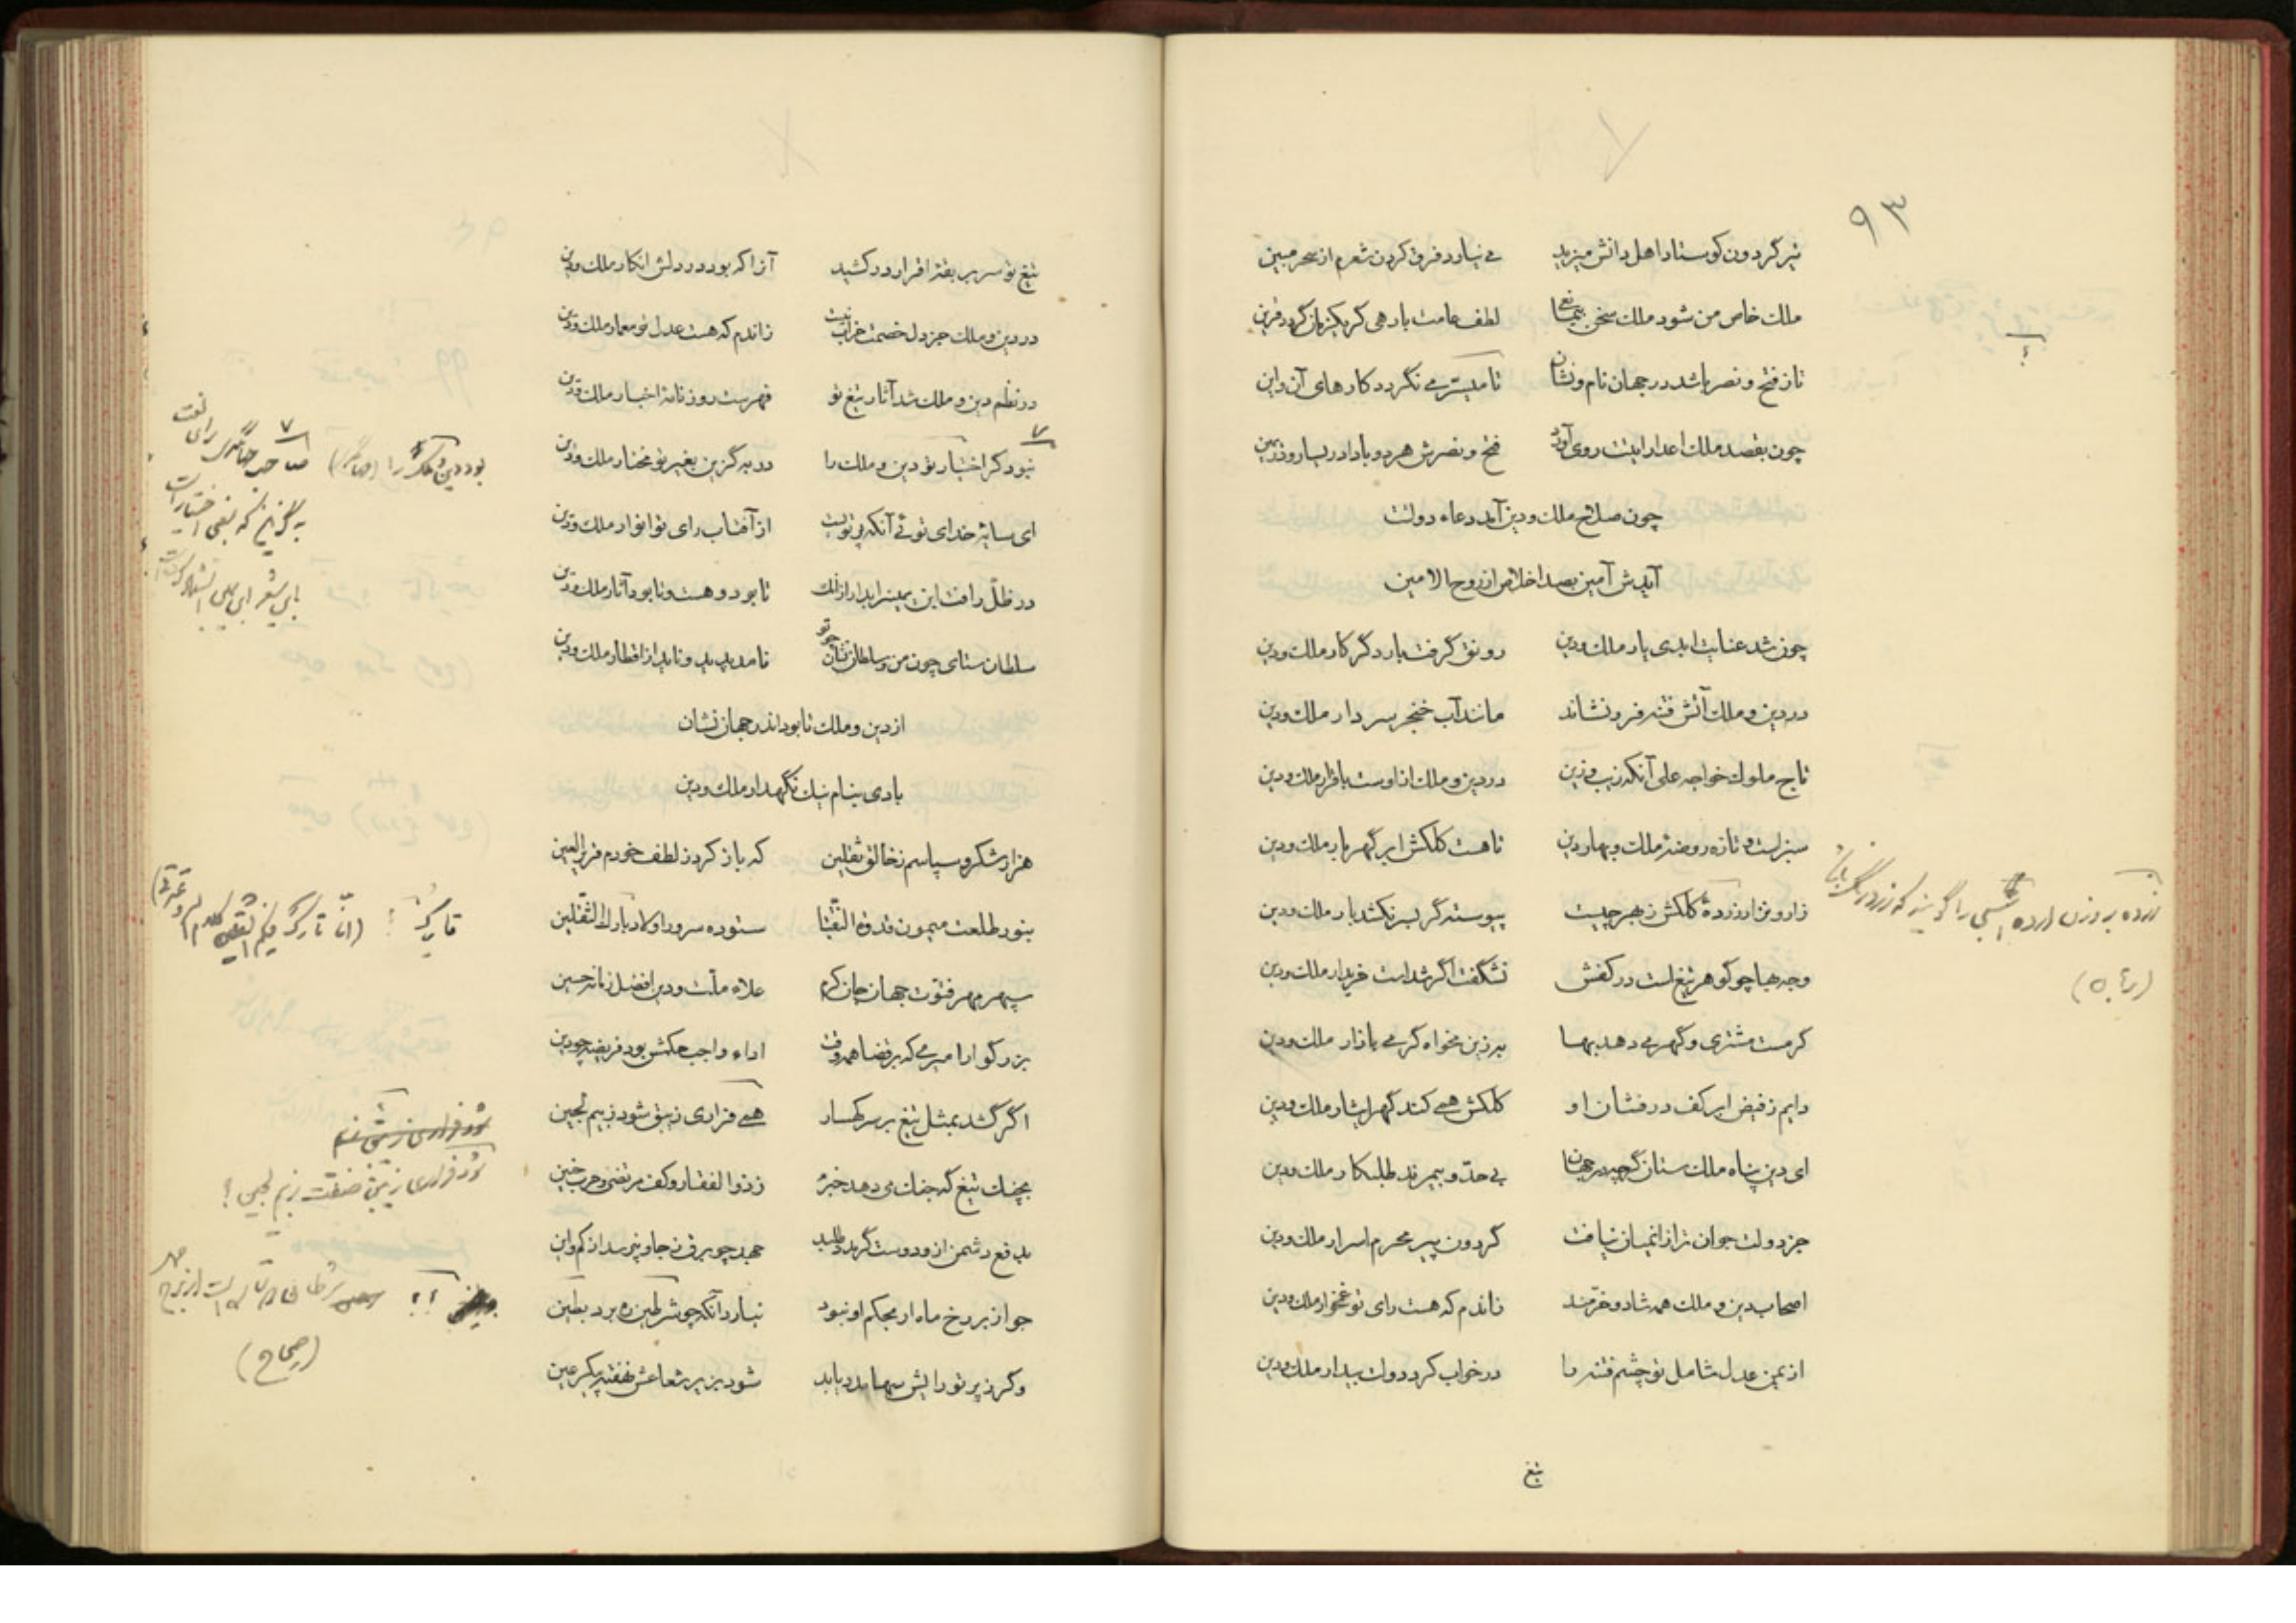 ۹۳
تیر گردون کوستاد اهل دانش میزید می نیارد فرق کردن شعرم از سحر مبین
ملک خاص من شود ملک سخن لطف عامت بار هی گر یکزمان گردد قرین
تا ز فتح و نصر باشد در جهان نام و نشان تا میسر می نگردد کارهای آن و این
چون بقصد ملک اعدا رایتت روی آورد فتح و نصرش هر دو بادا در یسار و در یمین
چون صلاح ملک و دین آمد دعاء دولتت
آیدش آمین بصد اخلاص از روح الامین
چون شد عنایت ابدی یار ملک و دین رونق گرفت بار دگر کار ملک و دین
در دین و ملک آتش فتنه فرو نشاند مانند آب خنجر سردار ملک و دین
تاج ملوک خواجه علی آنکه زیب و زین در دین و ملک ازوست باقرار ملک و دین
سبز است و تازه روضه ملک و بهار دین تا هست کلکش ابر گهربار ملک و دین
زار و نزار و زرده کلکش ز بهر چیست پیوسته گر بسر نکشد بار ملک و دین
وجه بها چو گوهر تیغ است در کفش نشگفت اگر شدست خریدار ملک و دین
کرمست مشتری و گهر می دهد بها به زین مخواه گرمی بازار ملک و دین
دایم ز فیض ابر کف درفشان او کلکش همی کند گهر ایثار ملک و دین
ای دین پناه ملک ستان گرچه در جهان بی حد و بیمرند طلبکار ملک و دین
جز دولت جوان ترا ز انمیان نیافت گردون پیر محرم اسرار ملک و دین
اصحاب دین و ملک همه شاد و خرمند زاندم که هست رای تو غمخوار ملک و دین
از یمن عدل شامل تو چشم فتنه را در خواب کرد دولت بیدار ملک و دین
تیغ
؟
زرده بر وزن ارده را گویند که زرد رنگ باشد
تیغ تو سر بربقه اقرار در کشید آنرا که بود در دلش انکار ملک و دین
در دین و ملک جز دل خصمت خراب نیست زاندم که هست عدل تو معمار ملک و دین
در نظم دین و ملک شد آثار تیغ تو فهرست روزنامه اخبار ملک و دین
نبود گر اختیار تو دین و ملک را در به گزین بغیر تو مختار ملک و دین
ای سایه خدای توئی آنکه پرتویست از آفتاب رای تو انوار ملک و دین
در ظل رافت این بمیر ابدار از آنک تا بود و هست و تا بود آثار ملک و دین
سلطان ستای چون من و سلطان نشان چو تو نامد پدید و ناید از اقطار ملک و دین
از دین و ملک تا بود اندر جهان نشان
بادی بنام نیک نگهدار ملک و دین
هزار شکر و سپاسم ز خالق ثقلین که باز کرد ز لطف خودم قریر العین
بنور طلعت میمون قدوة النقبا ستوده سرور اولاد بارک الثقلین
سپهر مهر فتوت جهان جان کرم علاء ملت و دین افضل زمانه حسین
بزرگوار امیری که بر قضا همه وقت اداء واجب حکمش بود فریضه چو دین
اگر کشد بمثل تیغ بر سر کهسار همی فراری زیبق شود ز بیم لجین
بچنگ تیغ که جنگ می دهد خبره ز ذوالفقار و کف مرتضی و حرب حنین
بدفع دشمن ازو دوست گر مدد طلبد جهد چو برق ز جا و نپرسد از کم و این
جواز بر رخ ماه ار بحکم او نبود نیارد آنکه چو شرطین ره برد بطین
و گر ز پرتو رایش سها مدد یابد شود بزیر شعاعش نهفته پیکر عین
تارک؟ (انی تارک فیکم الثقلین کلام الله و عترتی)
شود فراری زیبق صفت ز بیم لجین؟
(صحاح)